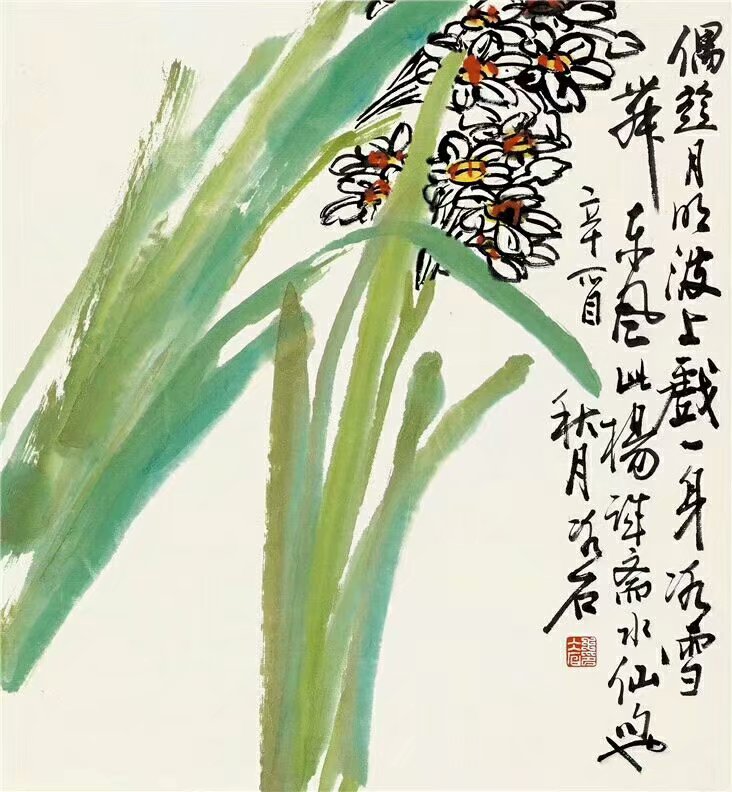 偶趁月明波上戲一身冰雪
舞東風此楊誠齋水仙句也
辛酉
秋月冰石